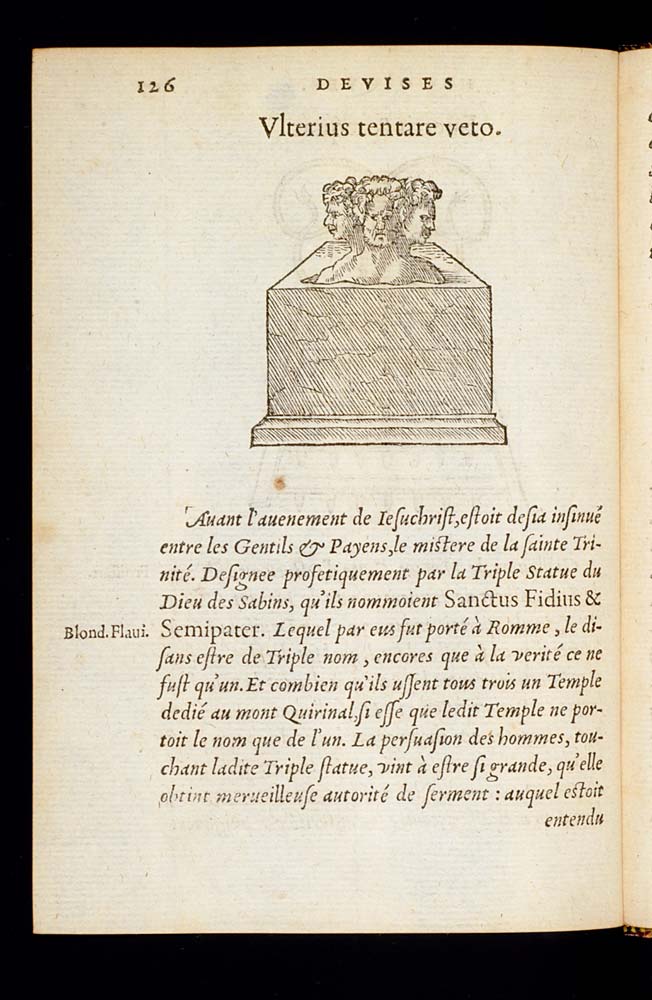 126 DEVISES
Vlterius tentare veto.
Auant l'auenement de Iesuchriſt, eſtoit deſia inſinué
entre les Gentils & Payens, le miſtere de la ſainte Tri-
nité. Deſignee profetiquement par la Triple Statue du
Dieu des Sabins, qu'ils nommoient Sanctus Fidius &
Blond. Flaui. Semipater. Lequel par eus fut porté à Romme, le di-
ſans eſtre de Triple nom, encores que à la verité ce ne
fuſt qu'un. Et combien qu'ils uſſent tous trois un Temple
dedié au mont Quirinal, ſi eſſe que ledit Temple ne por-
toit le nom que de l'un. La perſuaſion des hommes, tou-
chant ladite Triple ſtatue, vint à eſtre ſi grande, qu'elle
obtint merueilleuſe autorité de ſerment : auquel eſtoit
entendu